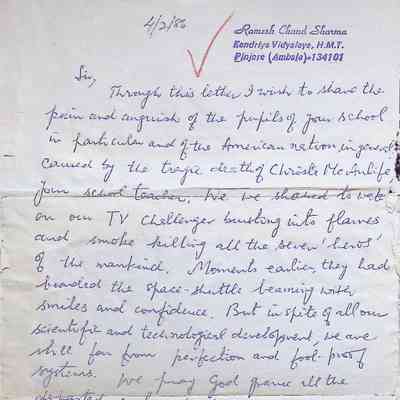 4/2/86
Ramesh Chand Sharma
Kendriya Vidyalaya, H.M.T.
Pinjore (Ambala)-134101
Sir,
Through this letter I wish to share the
pain and anguish of the pupils of your school
in particular and of the American nation in general
caused by the tragic death of Christa McAuliffe,
your school teacher. We were shocked to watch
on our TV Challenger bursting into flames
and smoke killing all the seven 'heros'
of the mankind. Moments earlier, they had
boarded the space-shuttle beaming with
smiles and confidence. But in spite of all our
scientific and technological development, we are
still far from perfection and fool-proof
systems. We pray God grant all the
departed